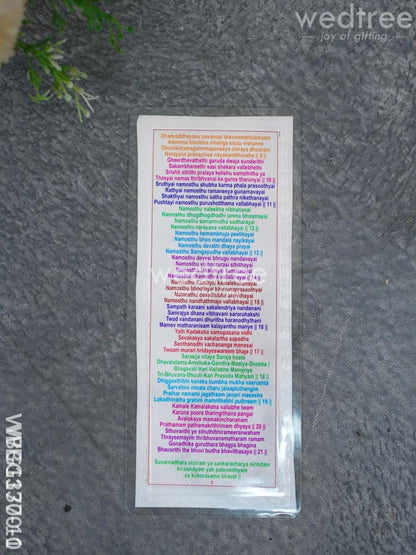 wedtree
joy of gifting
Dhadyaddhayanu pavanopi dravinambhudaraam
Asminna kinchina vihanga sisou vishanne
Dhushkaramagarmmapaneeya chiraya dhooram
Narayana pranayinee nayanambhuvaha || 9 ||
Gheerdhevathethi garuda dwaja sundarithi
Sakambhareethi sasi shekara vallebhethi
Srishti sthithi pralaya kelishu samsthitha ya
Thasyai namas thribhvanai ka guros tharunyai || 10 ||
Sruthyai namosthu shubha karma phala prasoothyai
Rathyai namosthu ramaneeya gunarnavayai
Shakthyai namosthu satha pathra nikethanayai
Pushtayi namosthu purushothama vallabhayai || 11 ||
Namosthu naleekha nibhananai
Namosthu dhugdhogdhadhi janma bhoomayai
Namosthu somamrutha sodharayai
Namosthu narayana vallabhayai || 12 ||
Namosthu hemambhuja peetikayai
Namosthu bhoo mandala nayikayai
Namosthu devathi dhaya prayai
Namosthu Sarngayudha vallabhayai || 13 ||
Namosthu devyai bhrugu nandanayai
Namosthu vishnorurasi sthithayai
Namosthu lakshmyai kamalalayai
Namosthu dhamodhara vallabhayai || 14 ||
Namosthu Kanthyai kamalekshanayai
Namosthu bhoothyai bhuvanaprasoothyai
Namosthu devadhibhir archithayai
Namosthu nandhathmaja vallabhayai || 15 ||
Sampath karaani sakalendriya nandanani
Samrajya dhana vibhavani saroruhakshi
Twad vandanani dhuritha haranodhythani
Mamev matharanisam kalayanthu manye || 16 ||
Yath Kadaksha samupasana vidhi
Sevakasya sakalartha sapadha
Santhanodhi vachananga manasai
Twaam murari hridayeswareem bhaje || 17 ||
Sarasija nilaye Saroja haste
Dhavalatama-Amshuka-Gandha-Maalya-Shobhe |
Bhagavati Hari-Vallabhe Manojnye
Tri-Bhuvana-Bhuuti-Kari Prasiida Mahyam || 18 ||
Dhiggasthibhi kanaka kumbha mukha vasrushta
Sarvahini vimala charu jalaapluthangim
Prathar namami jagathaam janani masesha
Lokadhinatha grahini mamrithabhi puthreem || 19 ||
Kamale Kamalaksha vallabhe twam
Karuna poora tharingithaira pangai
Avalokaya mamakinchananam
Prathamam pathamakrithrimam dhyaya || 20 ||
Sthuvanthi ya sthuthibhirameeranwaham
Thrayeemayim thribhuvanamatharam ramam
Gunadhika guruthara bhagya bhagina
Bhavanthi the bhuvi budha bhavithasayo || 21 ||
Suvarnadhara stotram ya sankaracharya nirmitam
tri-sandyam yah patennityam
sa kuberasamo bhavet ||
wedtree